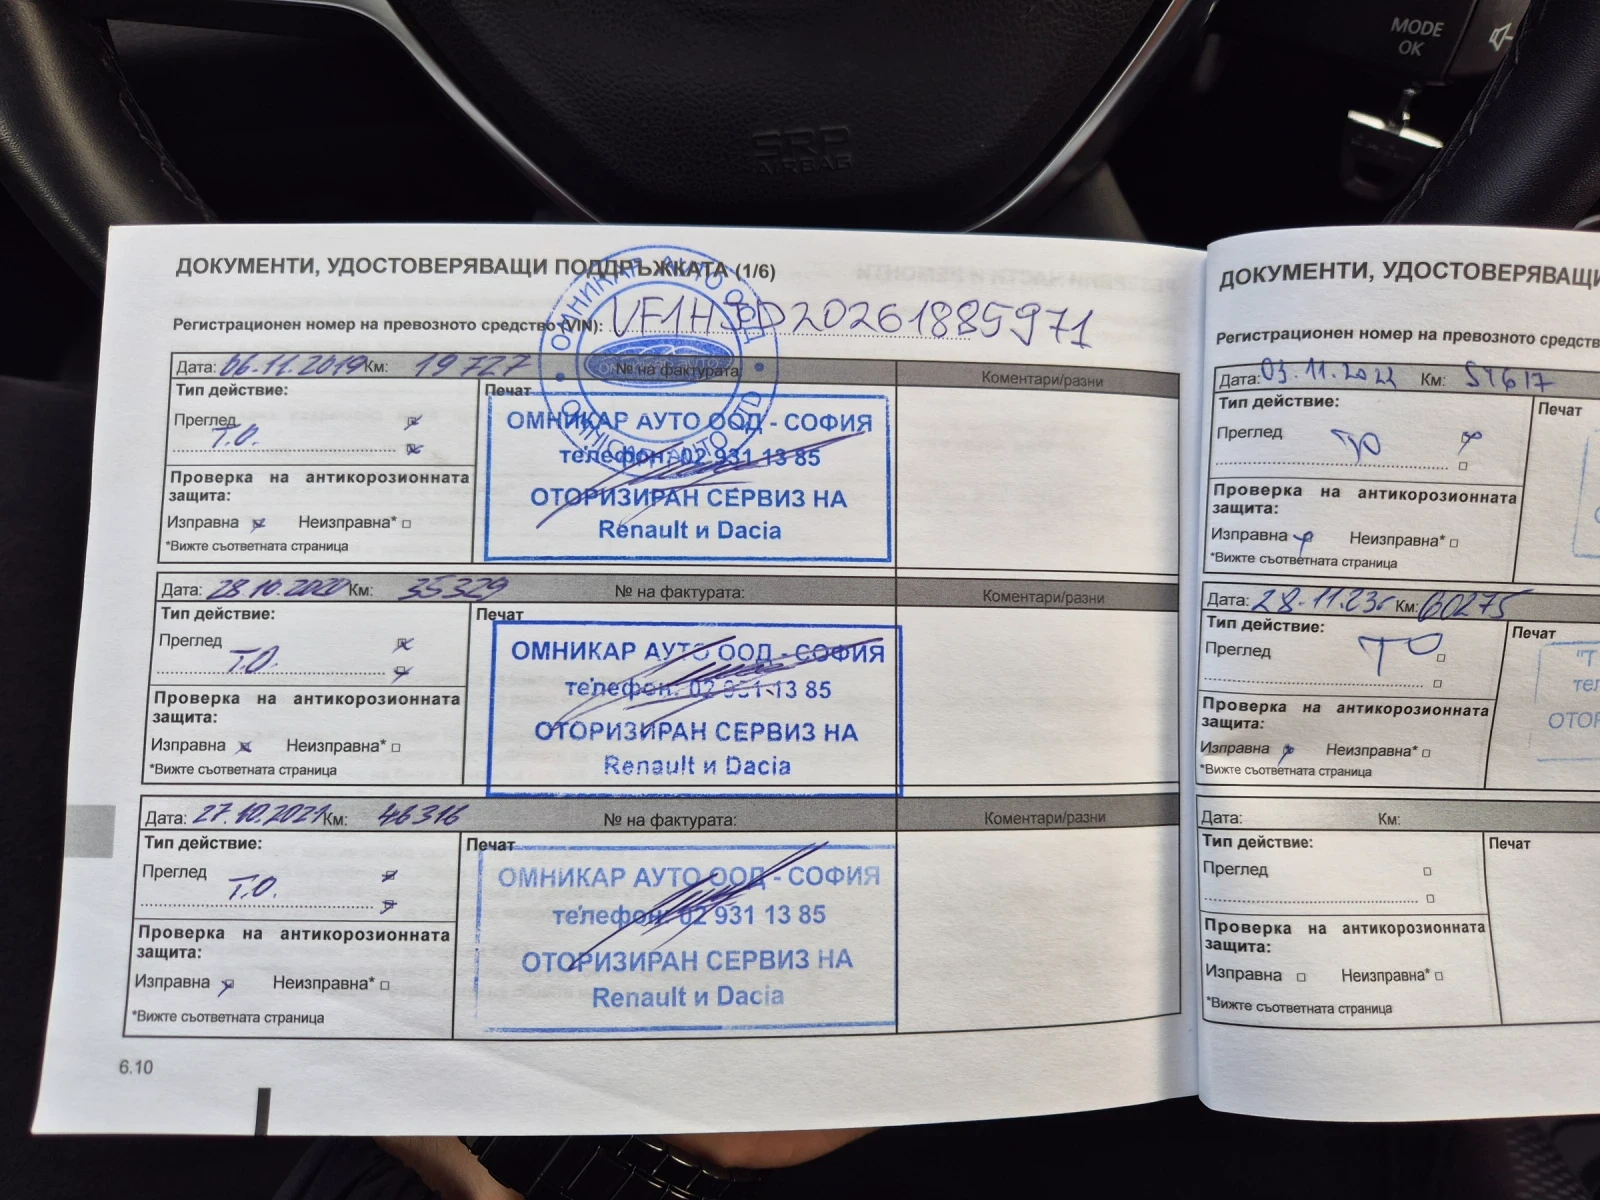 MODE
OK
SRP
AIRBAG
ДОКУМЕНТИ, УДОСТОВЕРЯВАЩИ ПОДДРЪЖКАТА (1/6)
Регистрационен номер на превозното средство (VIN): VF1HJD20261885971
ОМНИКАР АУТО ООД
OMNICAR AUTO LTD
Дата: 06.11.2019 Км: 19727 № на фактурата: Коментари/разни
Тип действие: Печат
Преглед
Т.О.
Проверка на антикорозионната
защита:
Изправна Неизправна*
*Вижте съответната страница
ОМНИКАР АУТО ООД - СОФИЯ
телефон: 02 931 13 85
ОТОРИЗИРАН СЕРВИЗ НА
Renault и Dacia
Дата: 28.10.2020 Км: 35329 № на фактурата: Коментари/разни
Тип действие: Печат
Преглед
Т.О.
Проверка на антикорозионната
защита:
Изправна Неизправна*
*Вижте съответната страница
ОМНИКАР АУТО ООД - СОФИЯ
телефон: 02 931 13 85
ОТОРИЗИРАН СЕРВИЗ НА
Renault и Dacia
Дата: 27.10.2021 Км: 46316 № на фактурата: Коментари/разни
Тип действие: Печат
Преглед
Т.О.
Проверка на антикорозионната
защита:
Изправна Неизправна*
*Вижте съответната страница
ОМНИКАР АУТО ООД - СОФИЯ
телефон: 02 931 13 85
ОТОРИЗИРАН СЕРВИЗ НА
Renault и Dacia
6.10
ДОКУМЕНТИ, УДОСТОВЕРЯВАЩИ
Регистрационен номер на превозното средств
Дата: 03.11.2022 Км:
Тип действие: Печат
Преглед ТО
Проверка на антикорозионната
защита:
Изправна Неизправна*
*Вижте съответната страница
Дата: 28.11.23 Км: 60275
Тип действие: Печат
Преглед ТО
Проверка на антикорозионната
защита:
Изправна Неизправна*
*Вижте съответната страница
"Т
тел
ОТОР
Дата: Км:
Тип действие: Печат
Преглед
Проверка на антикорозионната
защита:
Изправна Неизправна*
*Вижте съответната страница